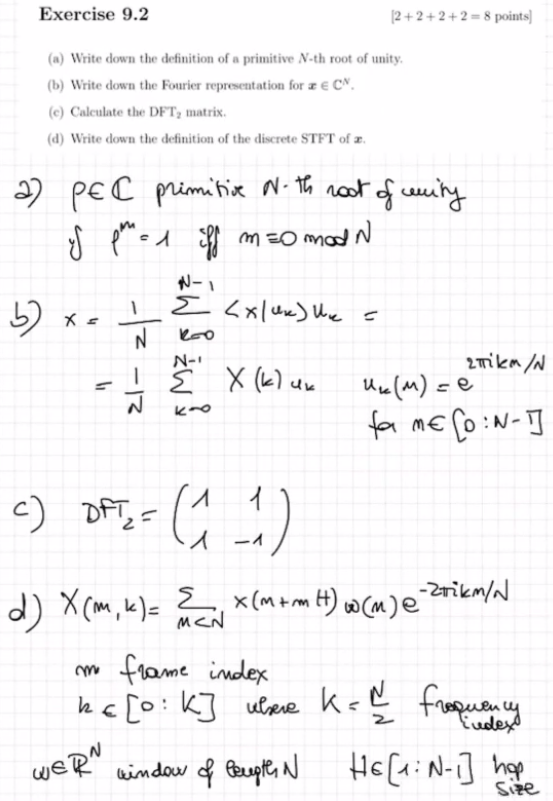 Exercise 9.2 [2 + 2 + 2 + 2 = 8 points]
(a) Write down the definition of a primitive N-th root of unity.
(b) Write down the Fourier representation for x ∈ ℂᴺ.
(c) Calculate the DFT₂ matrix.
(d) Write down the definition of the discrete STFT of x.
a) ρ∈ℂ primitive N-th root of unity
if ρᵐ = 1 iff m≡0 mod N
b) x = 1/N Σ_{k=0}^{N-1} <x|u_k> u_k =
= 1/N Σ_{k=0}^{N-1} X(k) u_k u_k(n) = e^{2πikn/N}
for n∈[0:N-1]
c) DFT₂ = (1 1
1 -1)
d) X(m,k) = Σ_{n<N} x(n+mH) w(n) e^{-2πikn/N}
m frame index
k ∈ [0:K] where K = N/2 frequency index
w∈ℝᴺ window of length N H∈[1:N-1] hop size